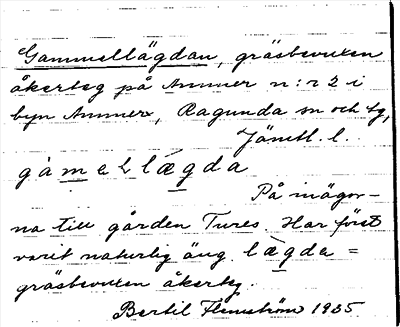 Gammellägdan, gräsbevuxen
åkerteg på Ammer n:r 2 i
byn Ammer, Ragunda sn och tg,
Jämtl. l.
gàmellǽgda
På mågor-
na till gården Tures. Har först
varit naturlig äng. lǽgda =
gräsbevuxen åkerteg.
Bertil Flemström 1935